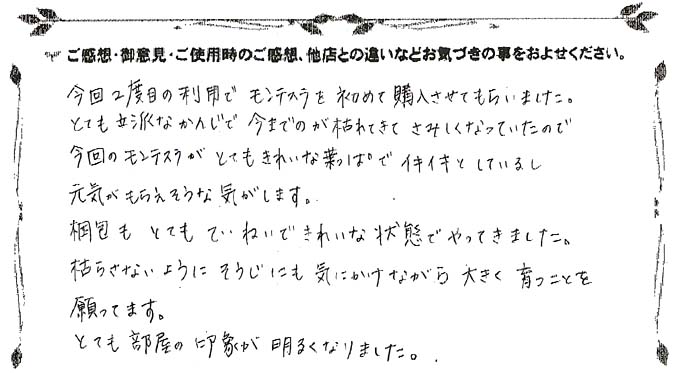 ご感想・御意見・ご使用時のご感想、他店との違いなどお気づきの事をおよせください。
今回2度目の利用で モンテスラを 初めて購入させてもらいました。
とても立派なかんじで 今までのが枯れてきて さみしくなっていたので
今回のモンテスラが とてもきれいな葉っぱで イキイキとしているし
元気がもらえそうな気がします。
梱包も とても ていねいできれいな状態でやってきました。
枯らさないように そうじにも 気にかけながら 大きく 育つことを
願ってます。
とても 部屋の 印象が 明るくなりました。